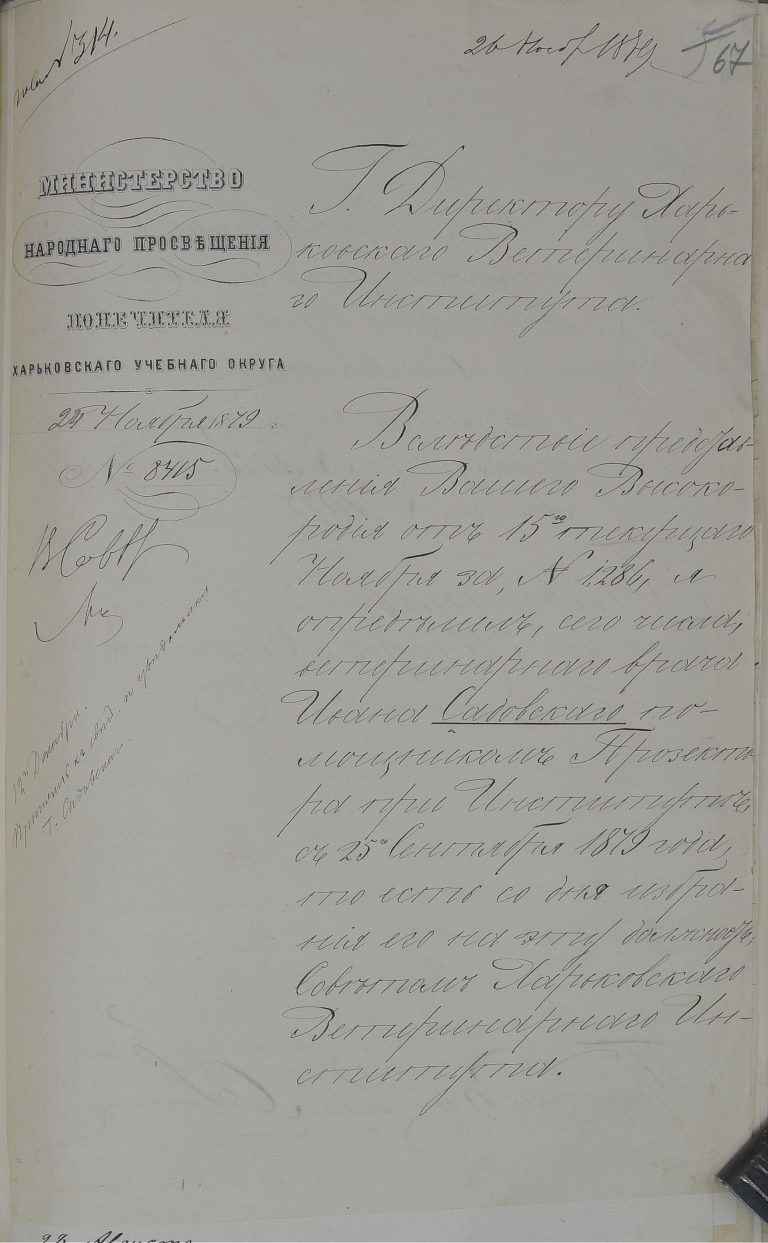 № 314.
26 Нояб 1879
67
МИНИСТЕРСТВО
НАРОДНАГО ПРОСВѢЩЕНІЯ
ПОПЕЧИТЕЛЯ
ХАРЬКОВСКАГО УЧЕБНАГО ОКРУГА
Ноября 1879 г
№ 8415
В Сов
12го Декабря.
Г. Садовскаго.
Г. Директору Харь-
ковскаго Ветеринарна
го Института.
Вслѣдствіе представ-
ленія Вашего Высоко-
родія отъ 15го текущаго
Ноября за № 1286, я
опредѣлилъ, сего числа,
ветеринарнаго врача
Ивана Садовскаго по-
мощникомъ Прозекто-
ра при Институтѣ,
съ 25го Сентября 1879 года,
то есть со дня избра-
нія его на эту должность
Совѣтомъ Харьковскаго
Ветеринарнаго Ин-
ститута.